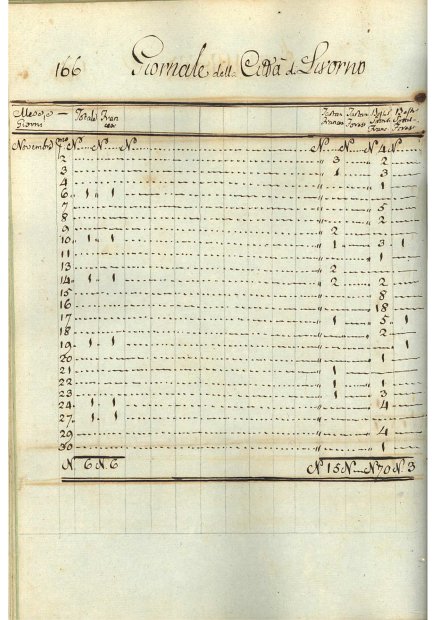 166 Giornale della Città di Livorno
Mese, e Giorni Totale Fran
Novembre N N N N N N 4 N
2 " 3 2
3 " 1 3
4 " 1
6 " 1 " 1 "
7 " 5
8 " 2
9 " 2
10 " 1 " 1 " 1 3 1
11 " 1
13 " 2
14 " 1 " 1 " 2 2
15 " 8
16 " 18
17 " 1 5 1
18 " 2
19 " 1 " 1 " 1
20 " 1
21 " 1
22 " 1 1
23 " 1 3
24 " 1 " 1 " 4
27 " 1 " 1 "
29 " 4
30 " 1
N. 6 N. 6 N 15 N N 70 N. 3